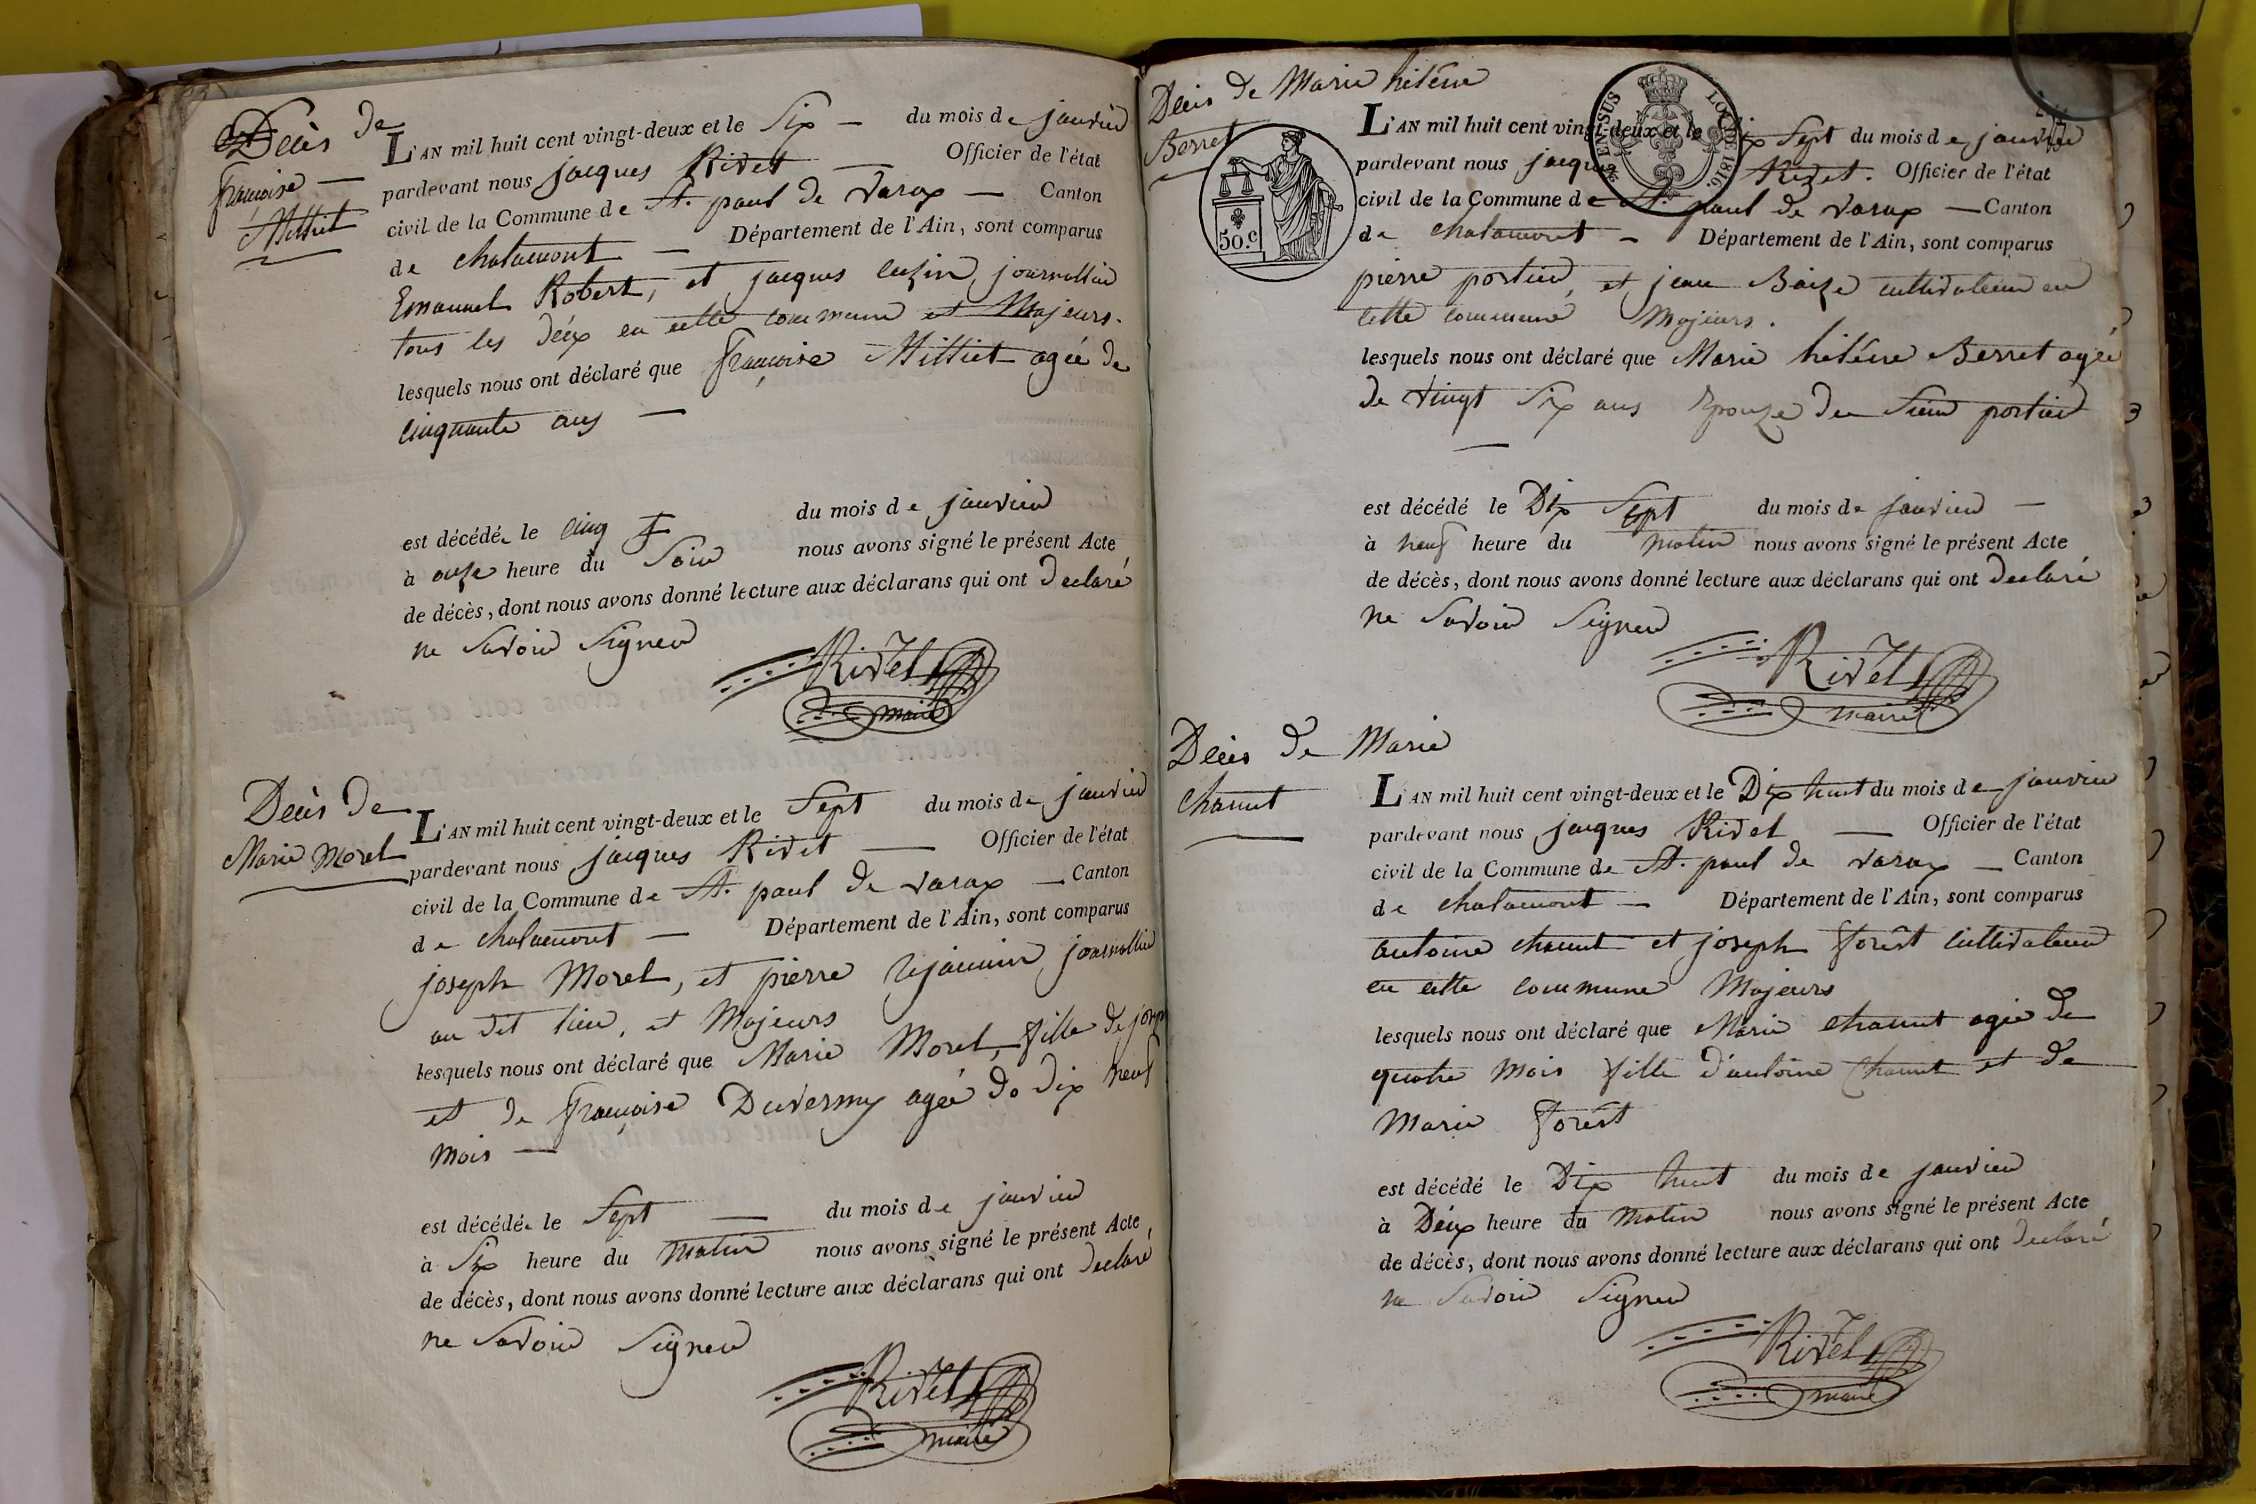 Décès de
françoise
Milliet
L'AN mil huit cent vingt-deux et le Six du mois de janvier
pardevant nous jacques Rivet Officier de l'état
civil de la Commune de St. paul de Varax Canton
de chalamont Département de l'Ain, sont comparus
Emanuel Robert, et jacques cuzin journallier
tous les deux en cette commune et Majeurs.
lesquels nous ont déclaré que françoise Milliet agée de
cinquante ans
est décédée le cinq du mois de janvier
à onze heure du Soir nous avons signé le présent Acte
de décès, dont nous avons donné lecture aux déclarans qui ont declaré
ne Savoir Signer
Rivet
maire
Décès de
Marie Morel
L'AN mil huit cent vingt-deux et le Sept du mois de janvier
pardevant nous jacques Rivet Officier de l'état
civil de la Commune de St. paul de Varax Canton
de chalamont Département de l'Ain, sont comparus
joseph Morel, et pierre journallier
au dit lieu, et Majeurs
lesquels nous ont déclaré que Marie Morel, fille de joseph
et de françoise Duverny agée de dix neuf
mois
est décédée le Sept du mois de janvier
à Six heure du matin nous avons signé le présent Acte
de décès, dont nous avons donné lecture aux déclarans qui ont declaré
ne Savoir Signer
Rivet
maire
Décès de Marie hélène
Berret
50.c
L'AN mil huit cent vingt-deux et le Sept du mois de janvier
pardevant nous jacques Rivet. Officier de l'état
civil de la Commune de St. paul de Varax Canton
de chalamont Département de l'Ain, sont comparus
pierre portier, et jean Baize cultivateur en
cette commune Majeurs.
lesquels nous ont déclaré que Marie hélène Berret agée
de vingt Six ans Epouze du Sieur portier
est décédé le Dix Sept du mois de janvier
à neuf heure du matin nous avons signé le présent Acte
de décès, dont nous avons donné lecture aux déclarans qui ont declaré
ne Savoir Signer
Rivet
maire
Décès de Marie
chanut
L'AN mil huit cent vingt-deux et le Dix huit du mois de janvier
pardevant nous jacques Rivet Officier de l'état
civil de la Commune de St. paul de Varax Canton
de chalamont Département de l'Ain, sont comparus
antoine chanut et joseph forêst cultivateur
en cette commune Majeurs
lesquels nous ont déclaré que Marie chanut agée de
quatre mois fille d'antoine Chanut et de
Marie forêst
est décédé le Dix huit du mois de janvier
à Deux heure du Matin nous avons signé le présent Acte
de décès, dont nous avons donné lecture aux déclarans qui ont declaré
ne Savoir Signer
Rivet
maire